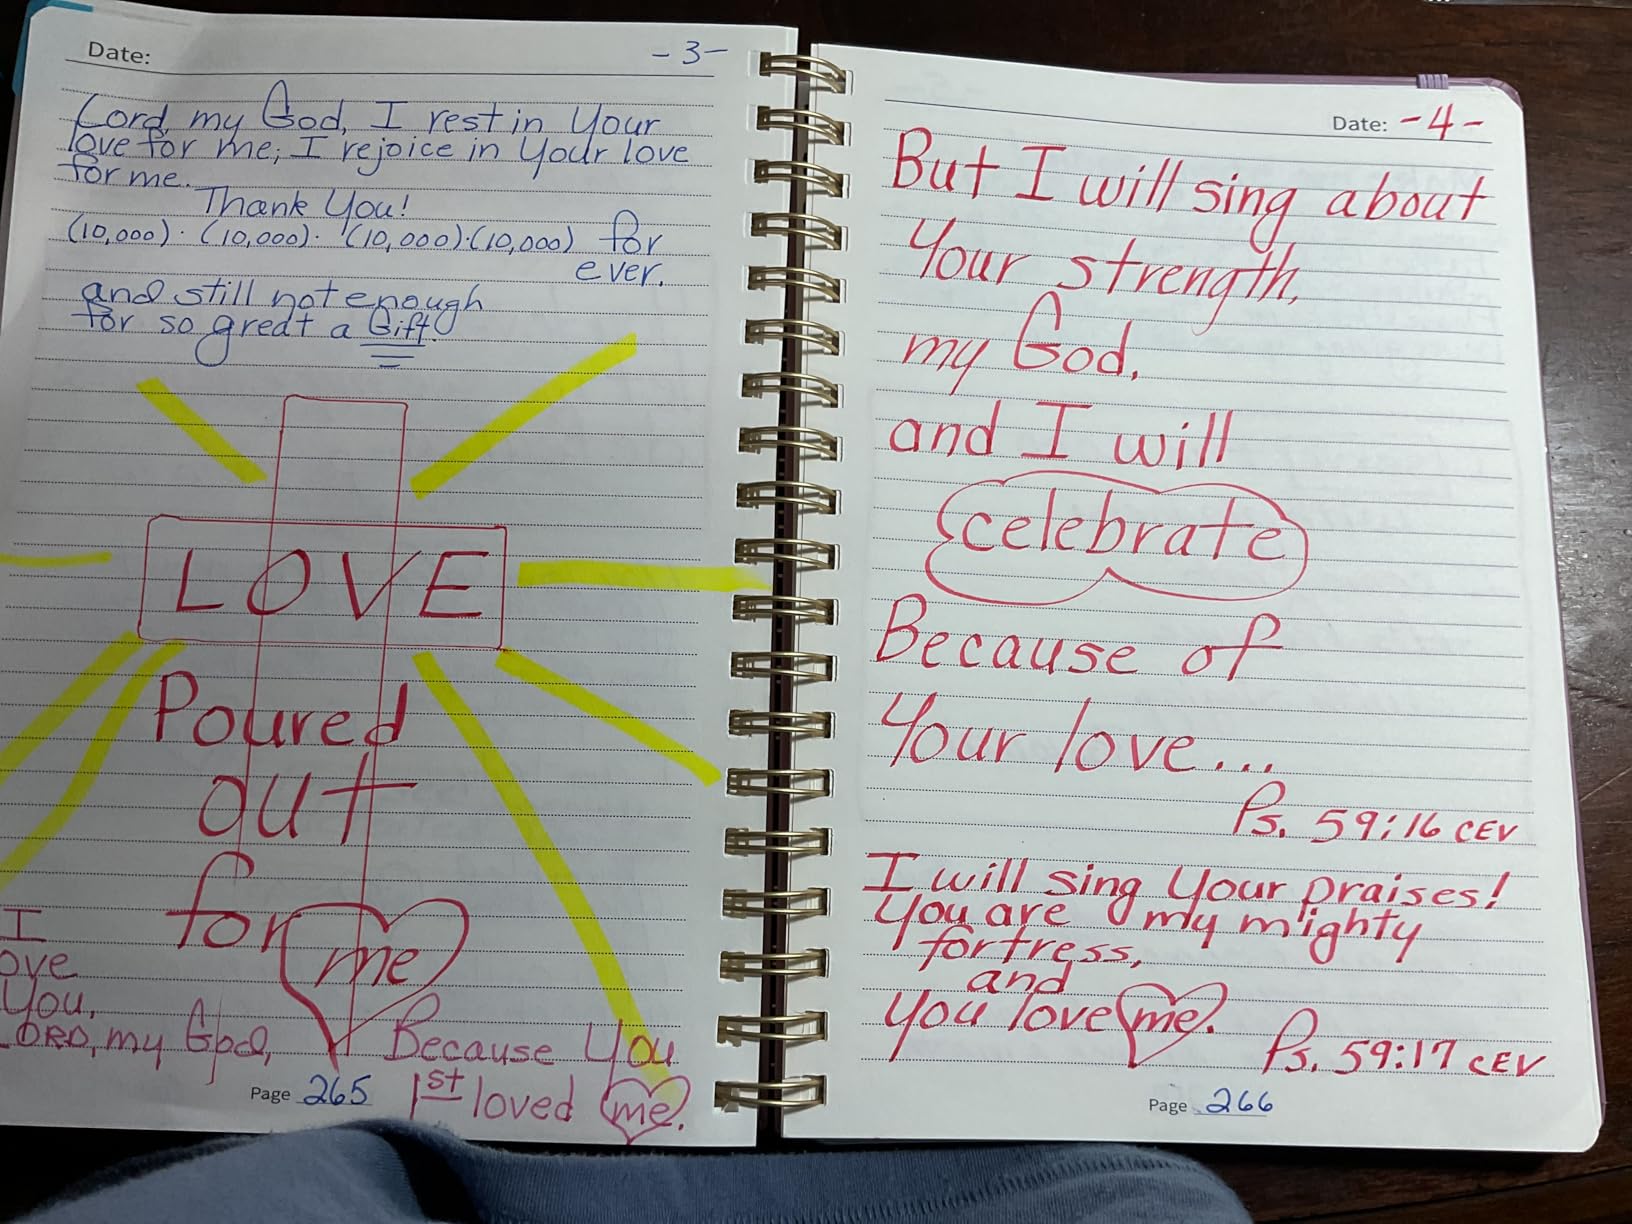 Date: -3-
Lord, my God, I rest in Your
love for me; I rejoice in Your love
for me.
Thank You!
(10,000) · (10,000) · (10,000) · (10,000) for
ever.
and still not enough
for so great a Gift.
LOVE
Poured
out
for me
I
ove
You,
LORD, my God,
Because You
1st loved me.
Page 265
Date: -4-
But I will sing about
Your strength,
my God,
and I will
celebrate
Because of
Your love...
Ps. 59:16 CEV
I will sing Your praises!
You are my mighty
fortress,
and
You love me.
Ps. 59:17 CEV
Page 266